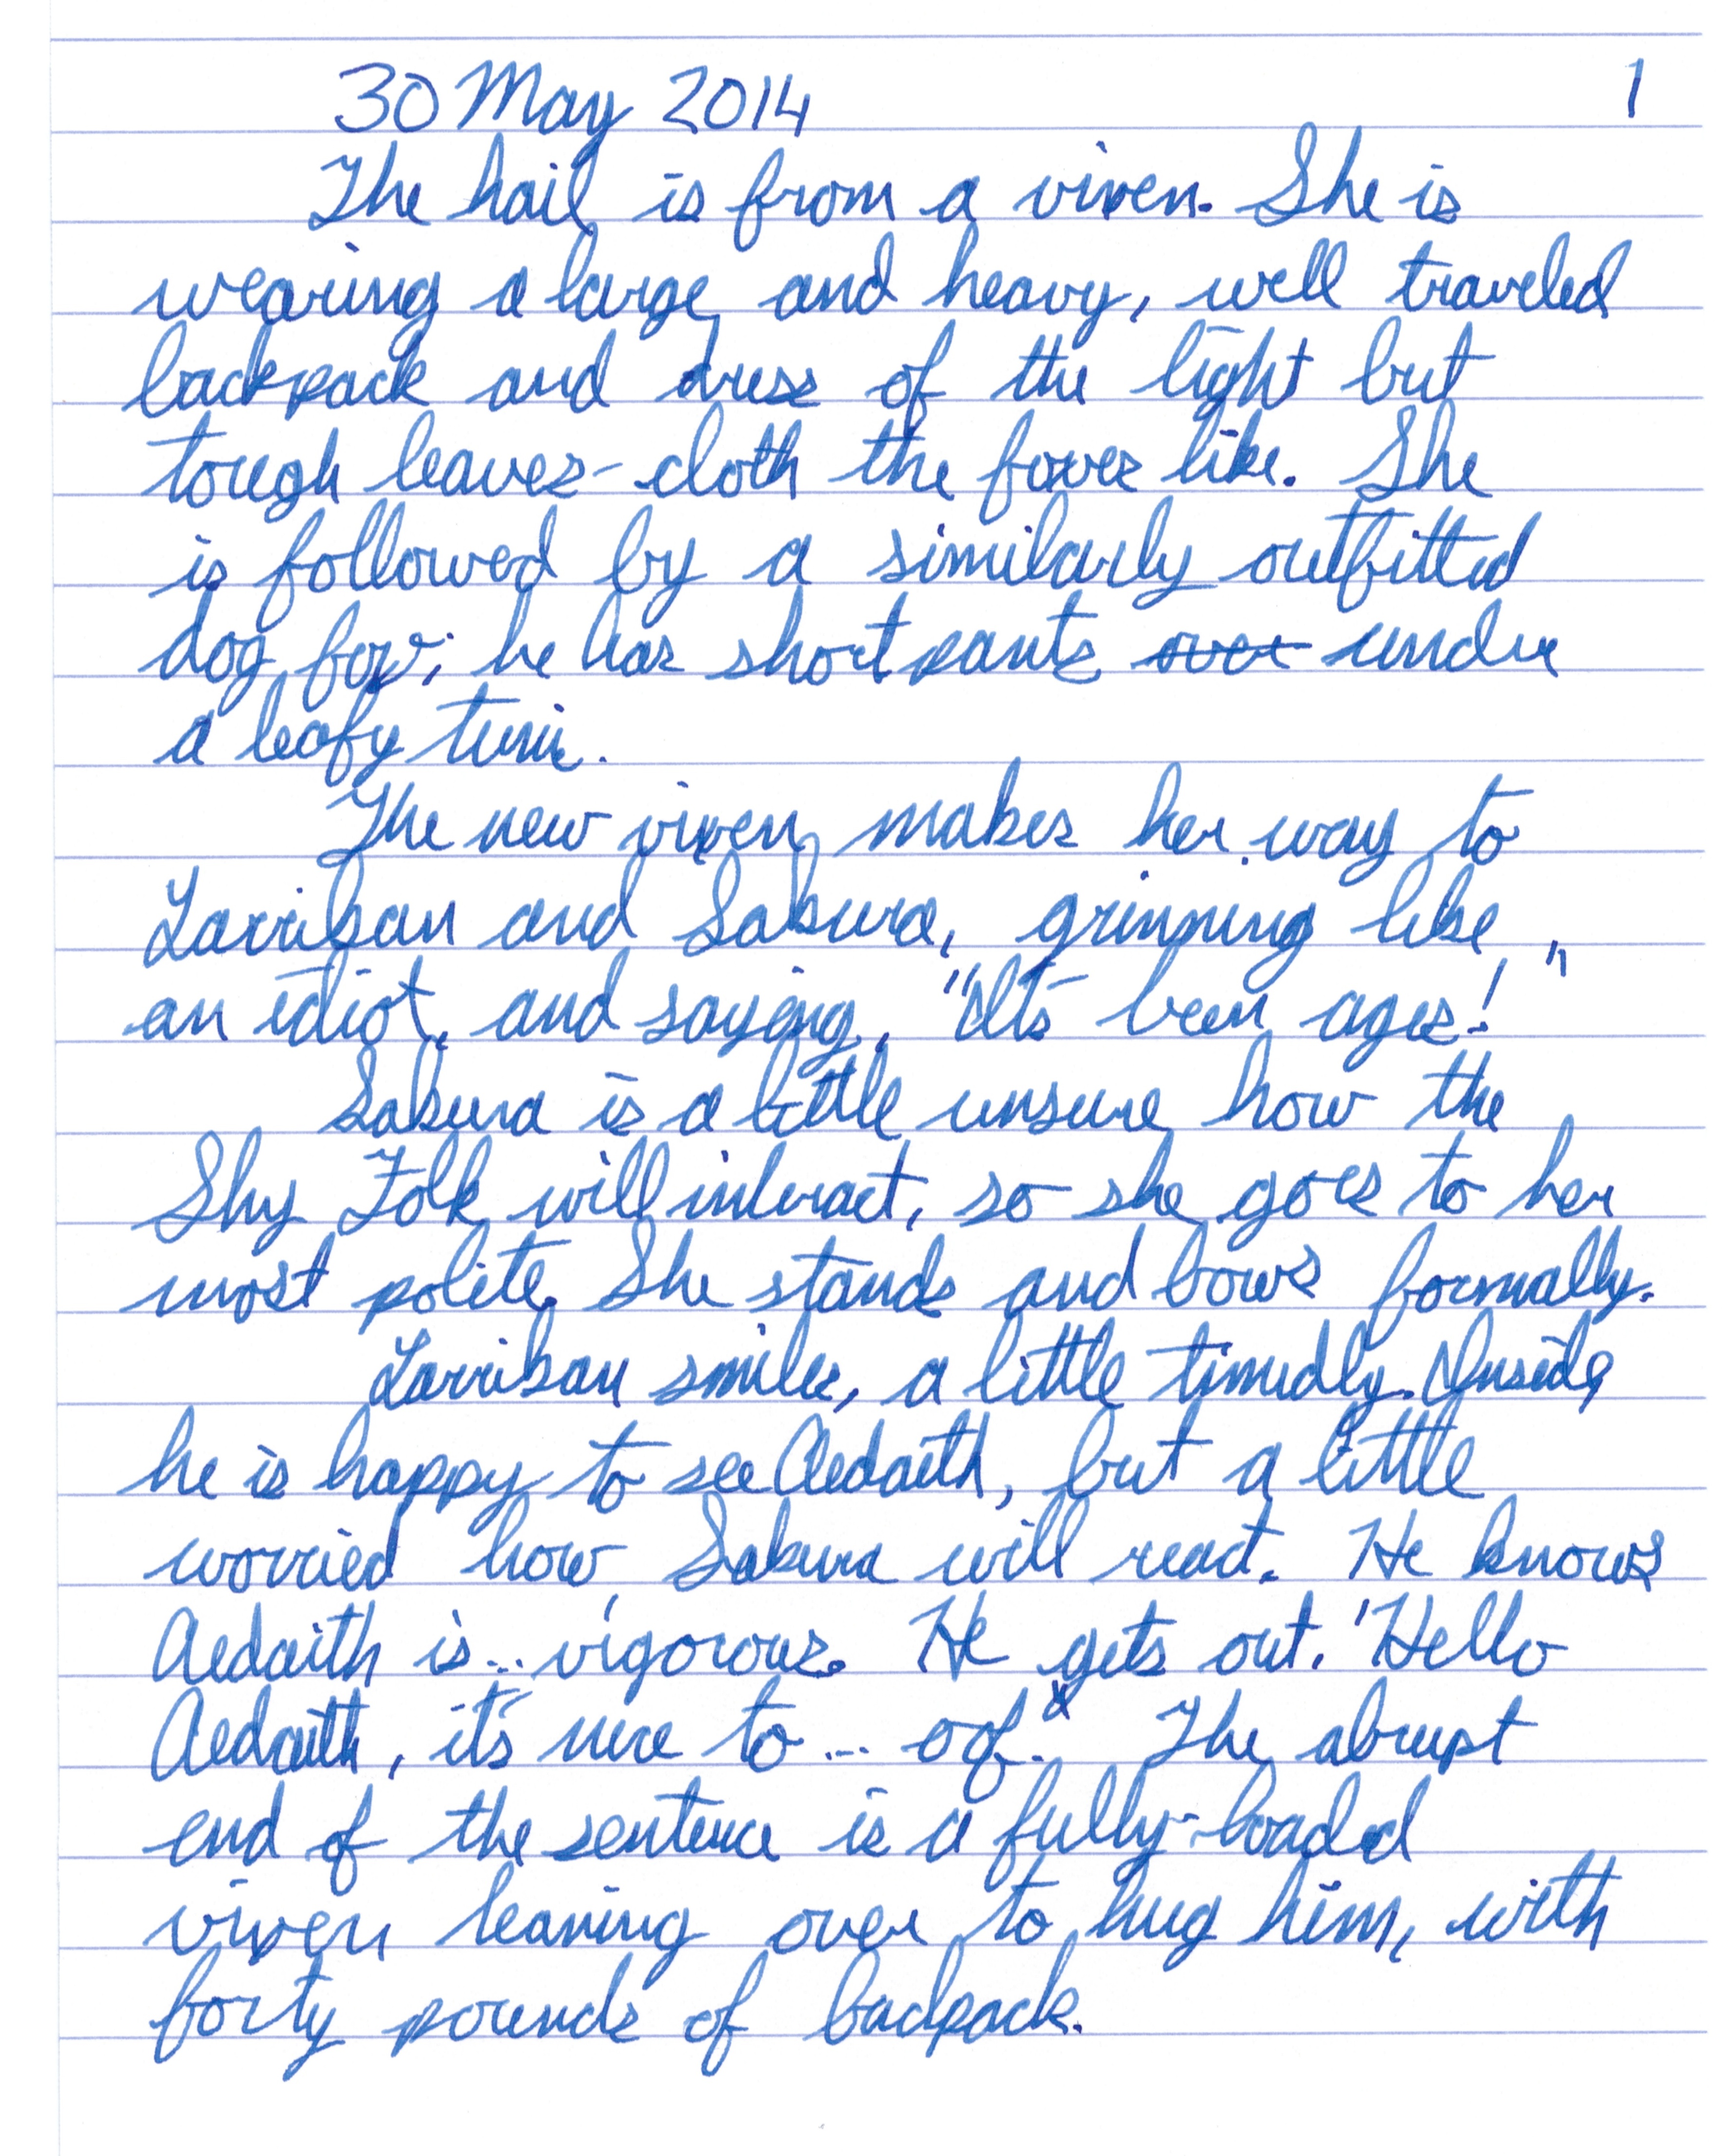 30 May 2014 1
The hail is from a vixen. She is
wearing a large and heavy, well traveled
backpack and dress of the light but
tough leaves-cloth the foxes like. She
is followed by a similarly outfitted
dog fox; he has short pants over under
a leafy tunic.
The new vixen makes her way to
Larrikan and Sakura, grinning like
an idiot, and saying, "It's been ages!"
Sakura is a little unsure how the
Shy Folk will interact, so she goes to her
most polite. She stands and bows formally.
Larrikan smiles, a little timidly. Inside,
he is happy to see Aedaith, but a little
worried how Sakura will react. He knows
Aedaith is... vigorous. He gets out, 'Hello
Aedaith, it's nice to ... oof." The abrupt
end of the sentence is a fully-loaded
vixen leaning over to hug him, with
forty pounds of backpack.